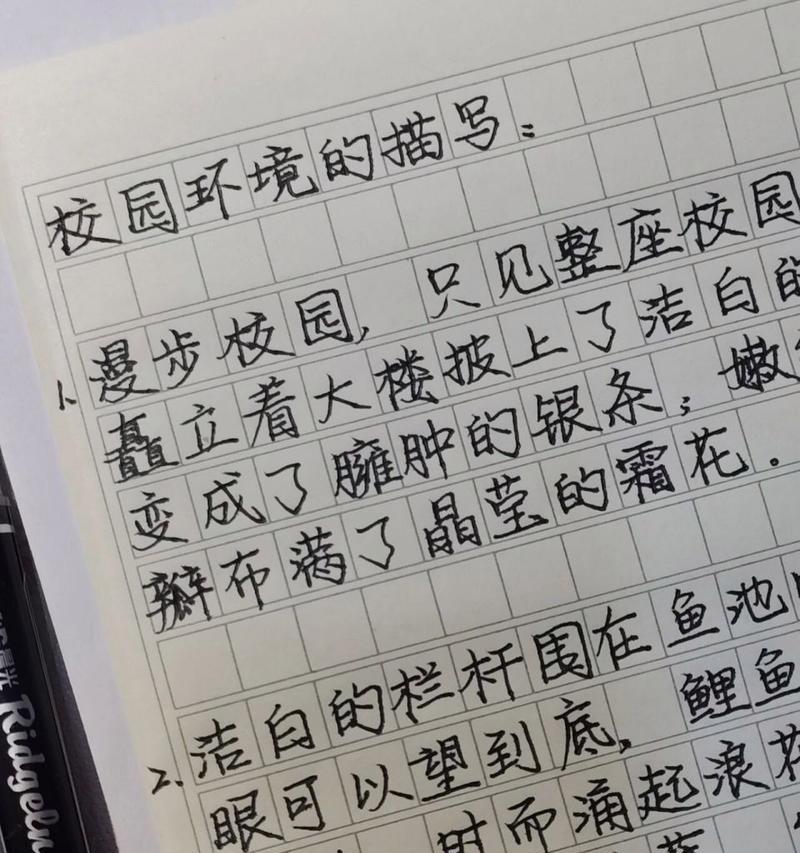 校园环境的描写：
1. 漫步校园，只见整座校园
矗立着大楼披上了洁白的
变成了臃肿的银条；嫩
瓣布满了晶莹的霜花。
2. 洁白的栏杆围在鱼池
眼可以望到底，鲤鱼
时而涌起浪花
晨光 Ridgeln